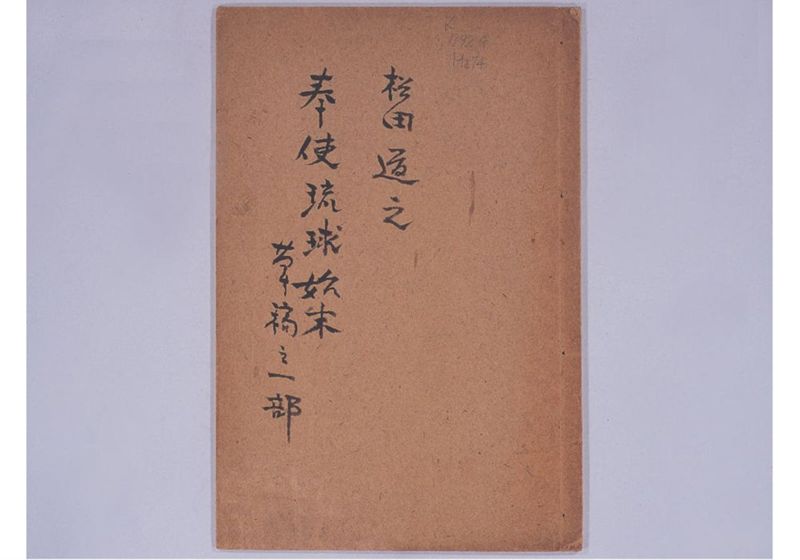 松田道之
奉使琉球始末
草稿之一部
K